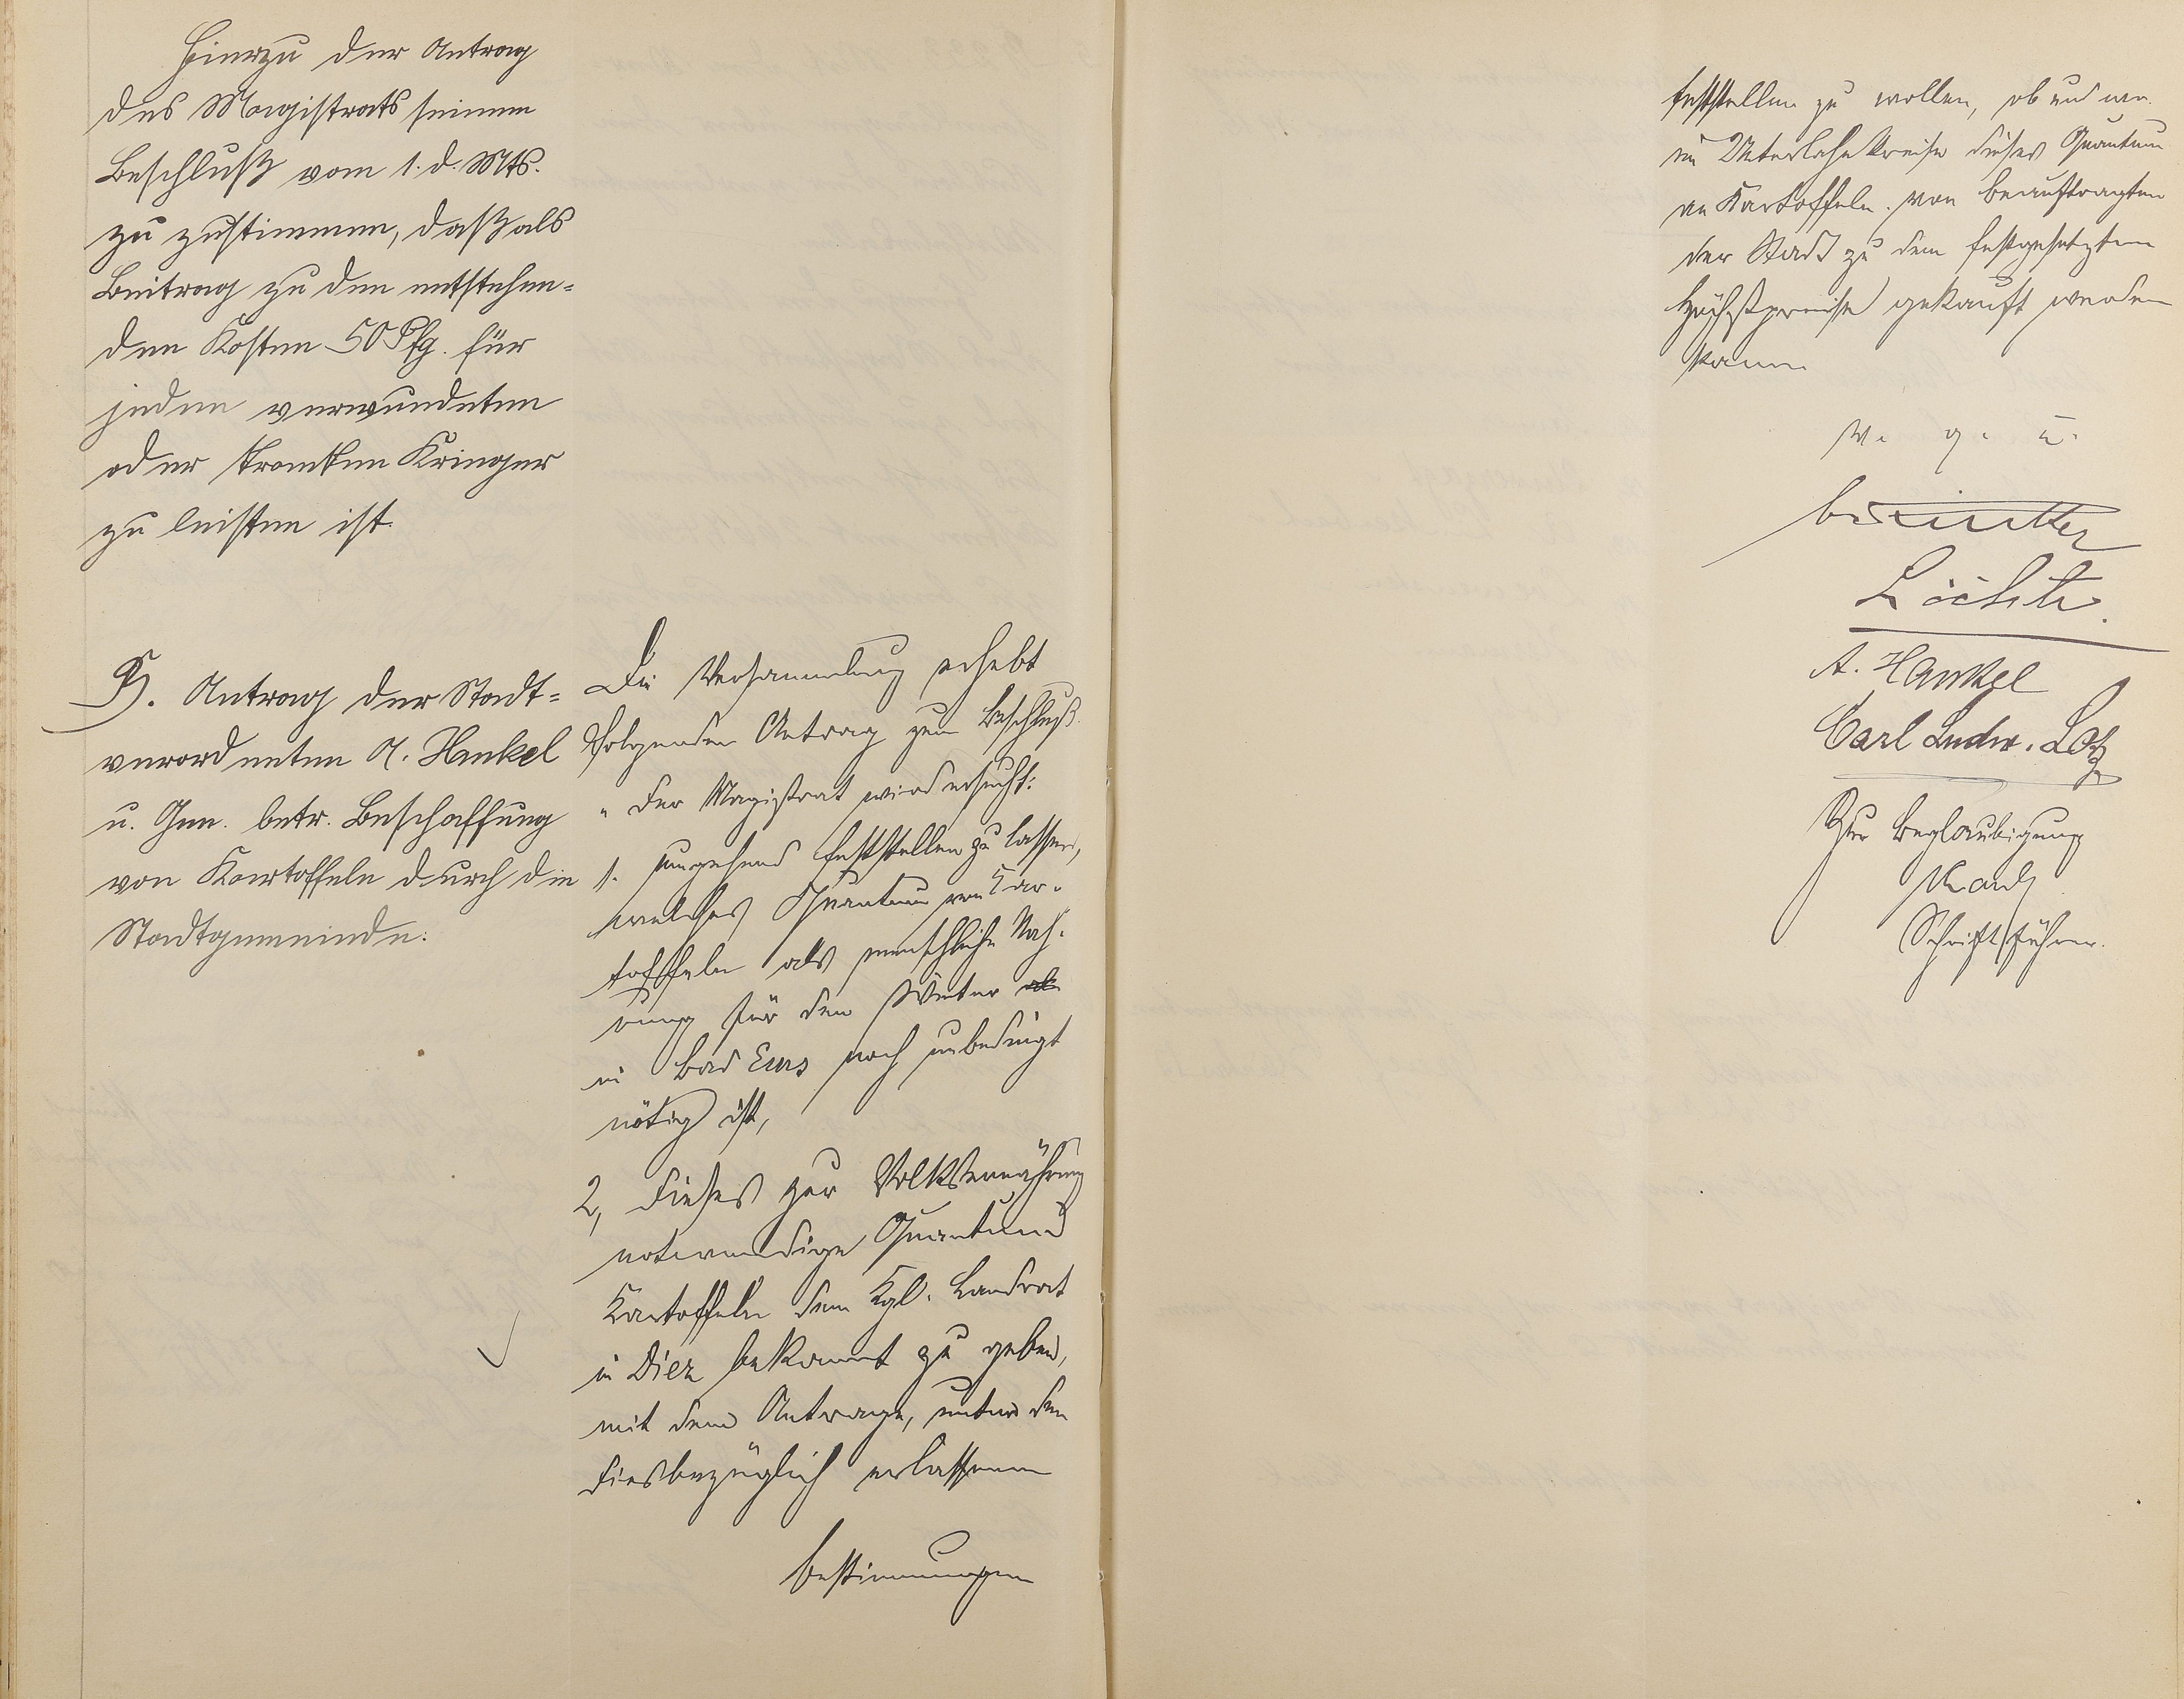 Hierzu der Antrag
des Magistrats seinem
Beschluß vom 1. d. Mts.
zu zustimmen, daß als
Beitrag zu den entstehen-
den Kosten 50 Pfg. für
jeden verwundeten
oder kranken Krieger
zu leisten ist.
5). Antrag der Stadt-
verordneten A. Henkel
u. Gen. betr. Beschaffung
von Kartoffeln durch die
Stadtgemeinde.
Die Versammlung erhebt
folgenden Antrag zum Beschluß
"Der Magistrat wird ersucht:
1. umgehend feststellen zu lassen,
welches Quantum von Kar-
toffeln als menschliche Nah-
rung für den Winter
in Bad Ems noch unbedingt
nötig ist,
2, dieses zur Volksernährung
notwendige Quantum
Kartoffeln dem Kgl. Landrat
in Diez bekannt zu geben,
mit dem Antrage, unter den
diesbezüglich erlassenen
Bestimmungen
feststellen zu wollen, ob und wo
im Unterlahnkreise dieses Quantum
an Kartoffeln von Beauftragten
der Stadt zu dem festgesetzten
Höchstpreise gekauft werden
kann
v. g. u.
A. Henkel
Carl Ludw. Lotz
Zur Beglaubigung
Schriftführer.